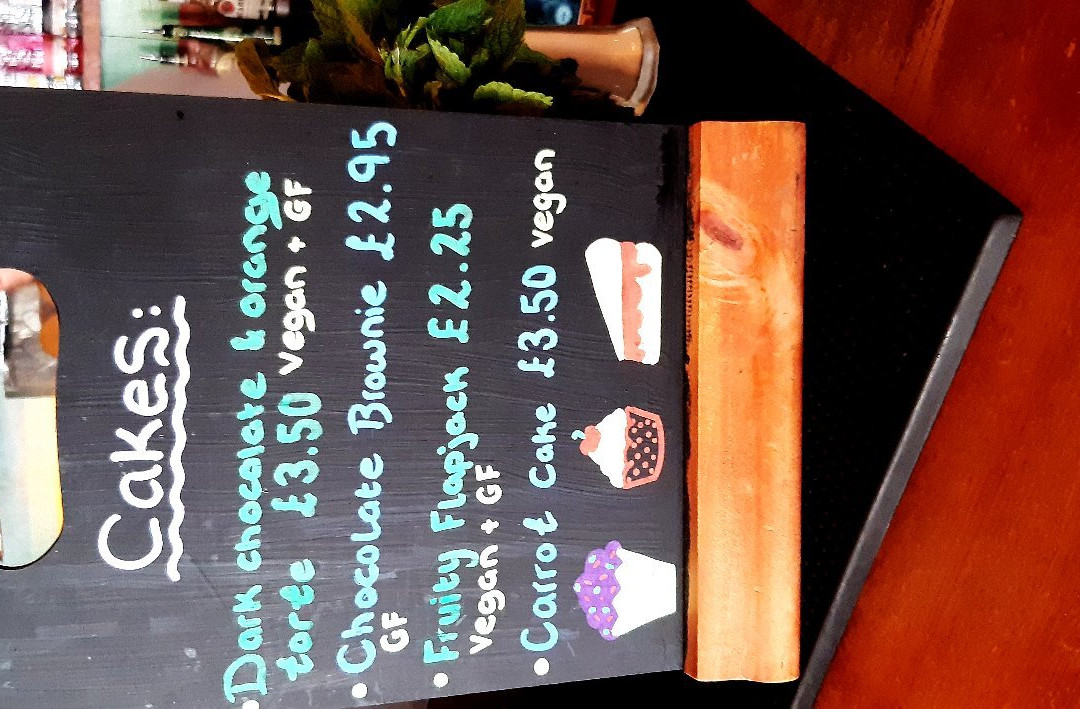 Cakes:
• Dark chocolate & orange
torte £3.50 vegan + GF
• Chocolate Brownie £2.95
GF
• Fruity Flapjack £2.25
Vegan + GF
• Carrot Cake £3.50 vegan